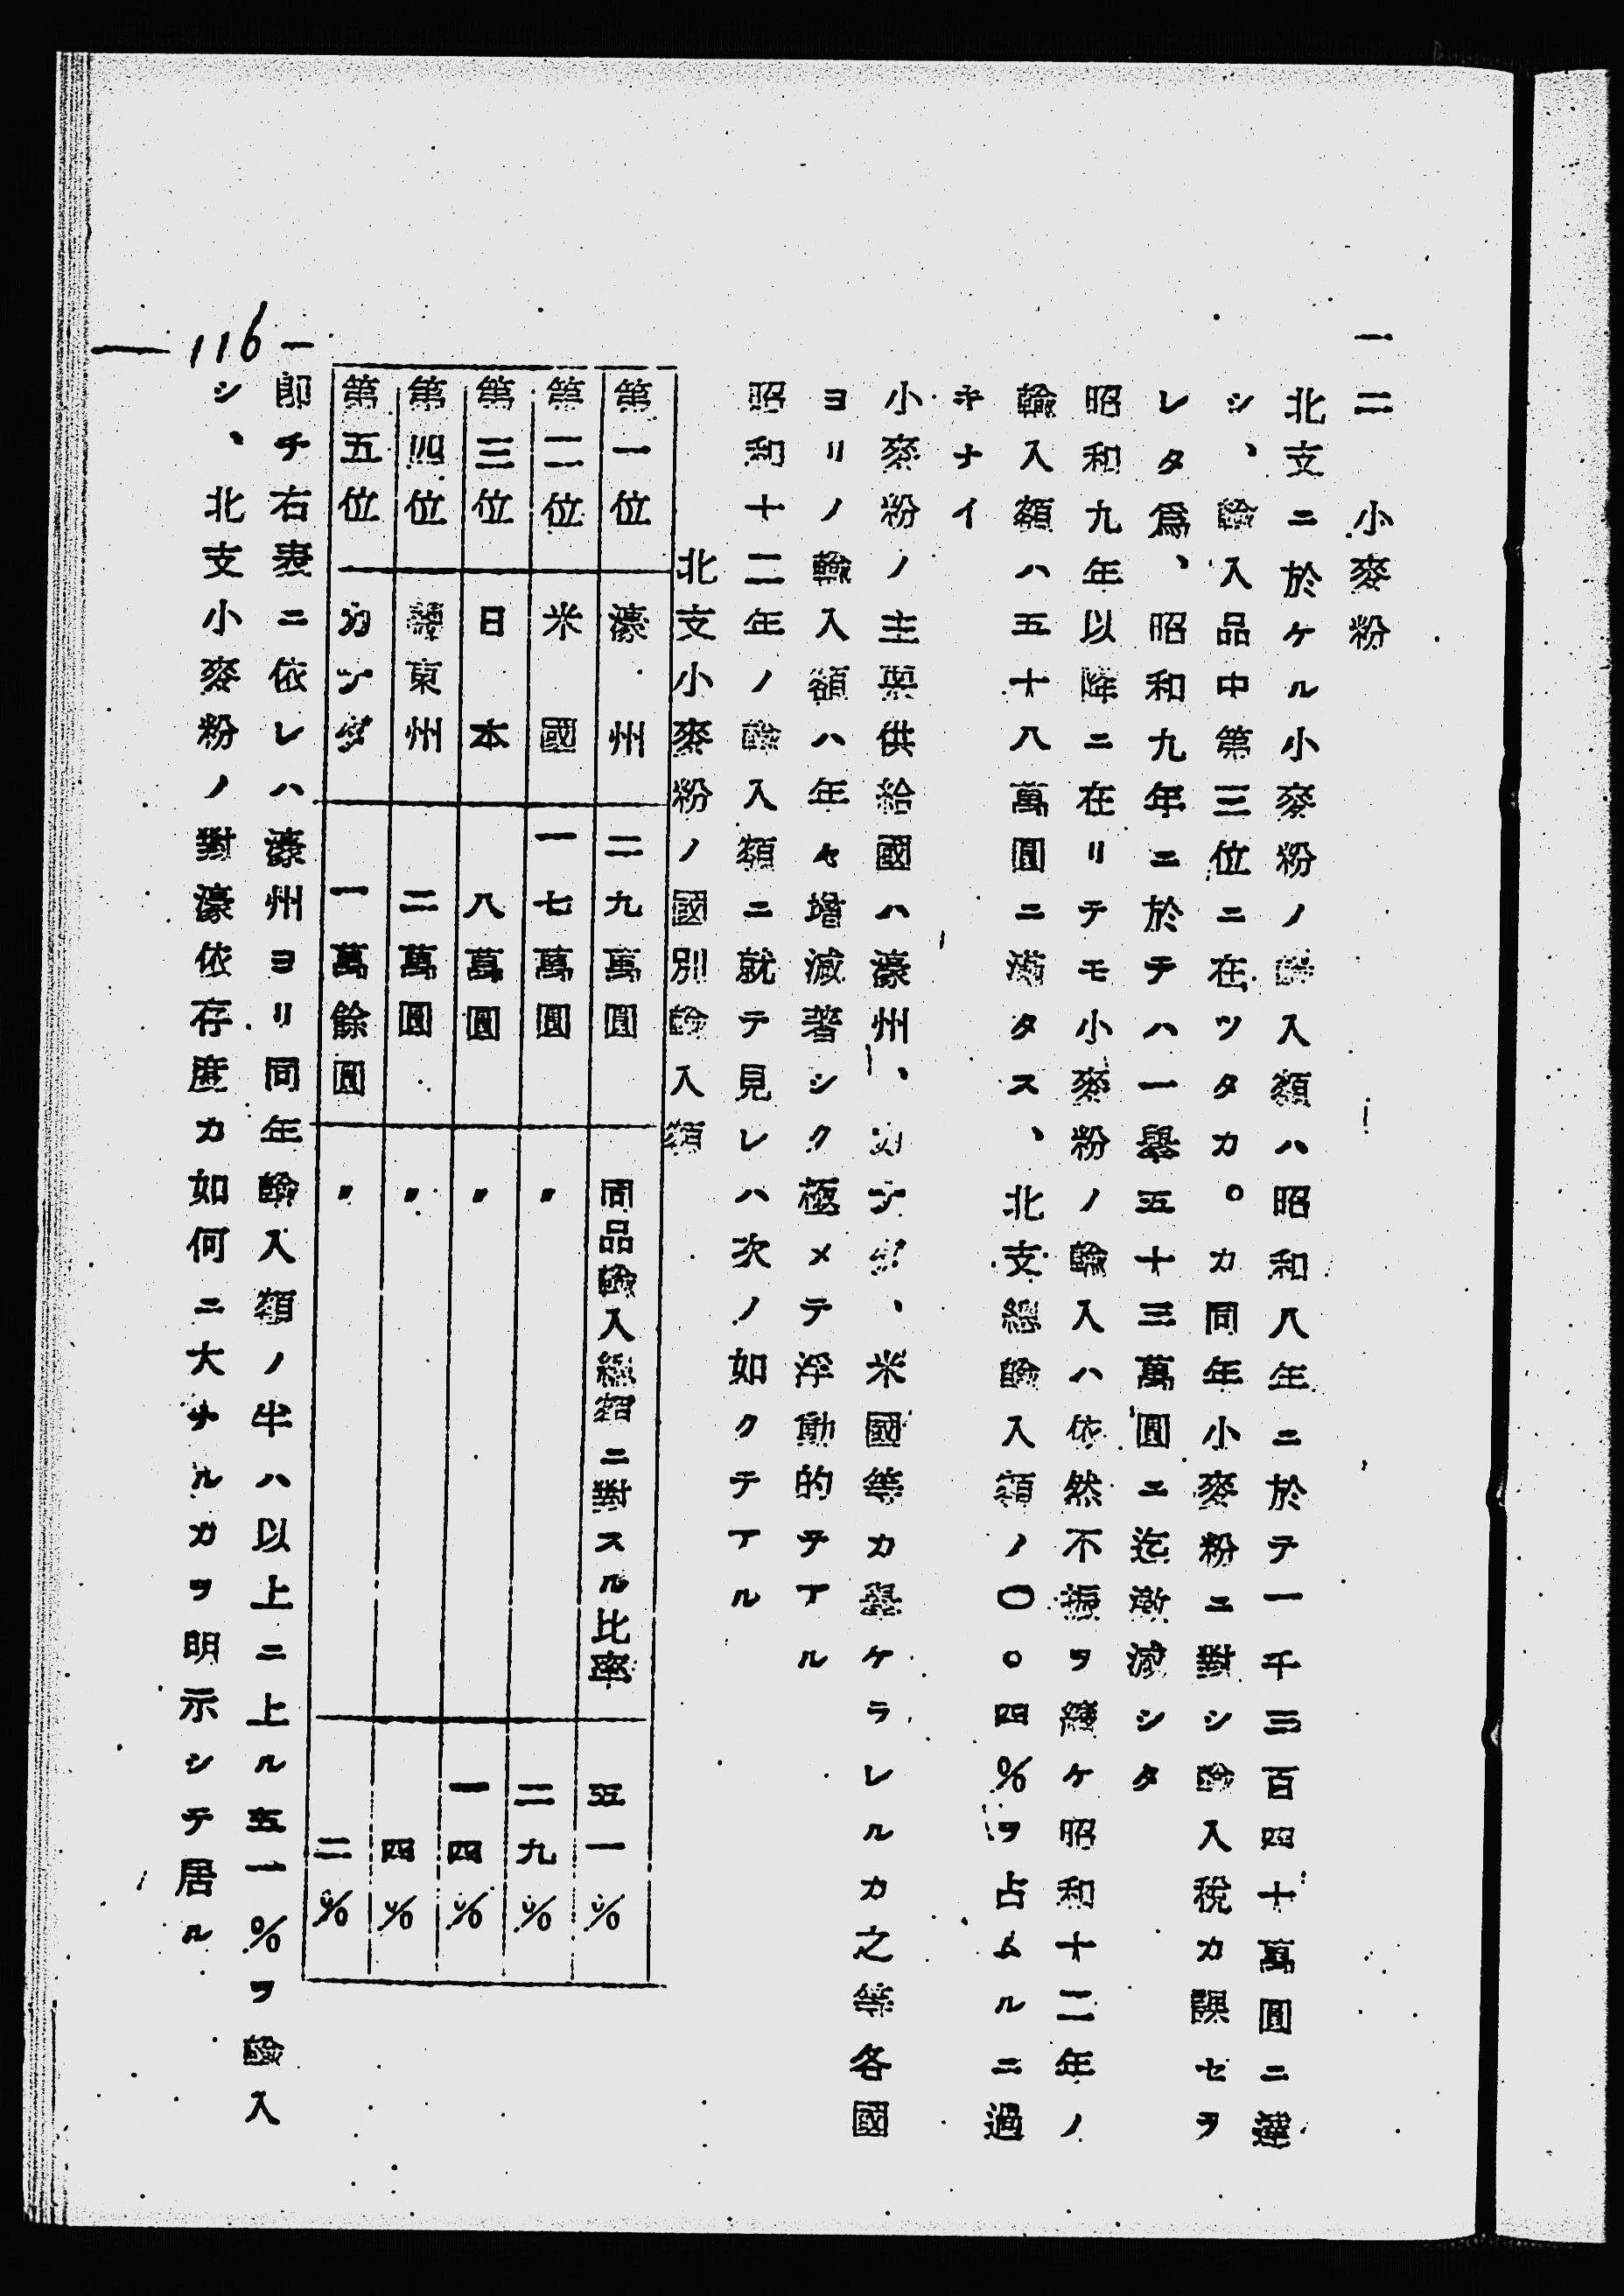 一二 小麥粉
北支ニ於ケル小麥粉ノ輸入額ハ昭和八年ニ於テ一千三百四十萬圓ニ達
シ、輸入品中第三位ニ在ツタカ。カ同年小麥粉ニ對シ輸入税カ課セヲ
レタ爲、昭和九年ニ於テハ一擧五十三萬圓ニ迄激減シタ
昭和九年以降ニ在リテモ小麥粉ノ輸入ハ依然不振ヲ續ケ昭和十二年ノ
輸入額ハ五十八萬圓ニ滿タス、北支總輸入額ノ〇。四%ヲ占ムルニ過
キナイ
小麥粉ノ主要供給國ハ濠州、カナダ、米國等カ擧ケラレルカ之等各國
ヨリノ輸入額ハ年々增減著シク極メテ浮動的テアル
昭和十二年ノ輸入額ニ就テ見レハ次ノ如クテアル
北支小麥粉ノ國別輸入額
第一位 濠州 二九萬圓 同品輸入總額ニ對スル比率 五一%
第二位 米國 一七萬圓 〃 二九%
第三位 日本 八萬圓 〃 一四%
第四位 關東州 二萬圓 〃 四%
第五位 カナダ 一萬餘圓 〃 二%
即チ右表ニ依レハ濠州ヨリ同年輸入額ノ半ハ以上ニ上ル五一%ヲ輸入
シ、北支小麥粉ノ對濠依存度カ如何ニ大ナルカヲ明示シテ居ル
—116—